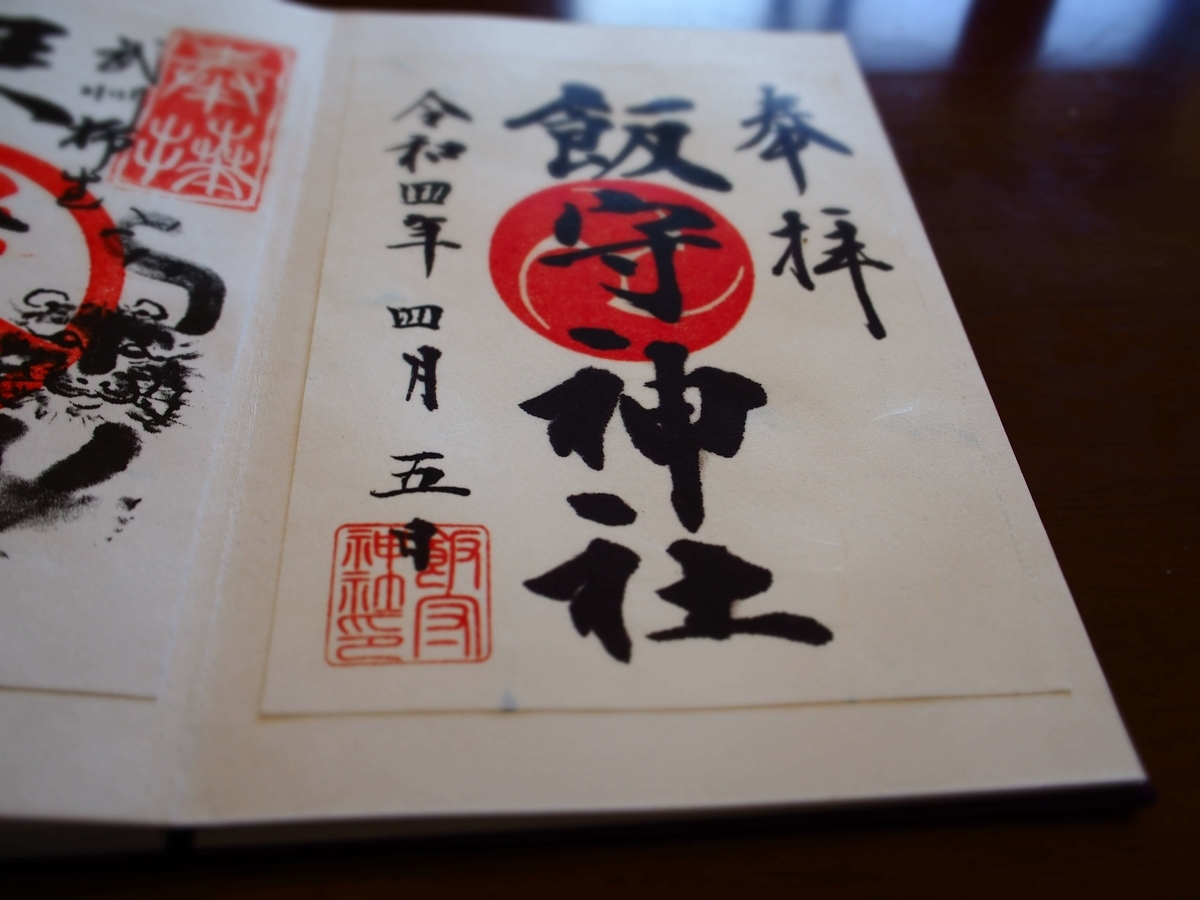 奉拝
飯守神社
令和四年 四月 五日
飯守
神社印
奉拝